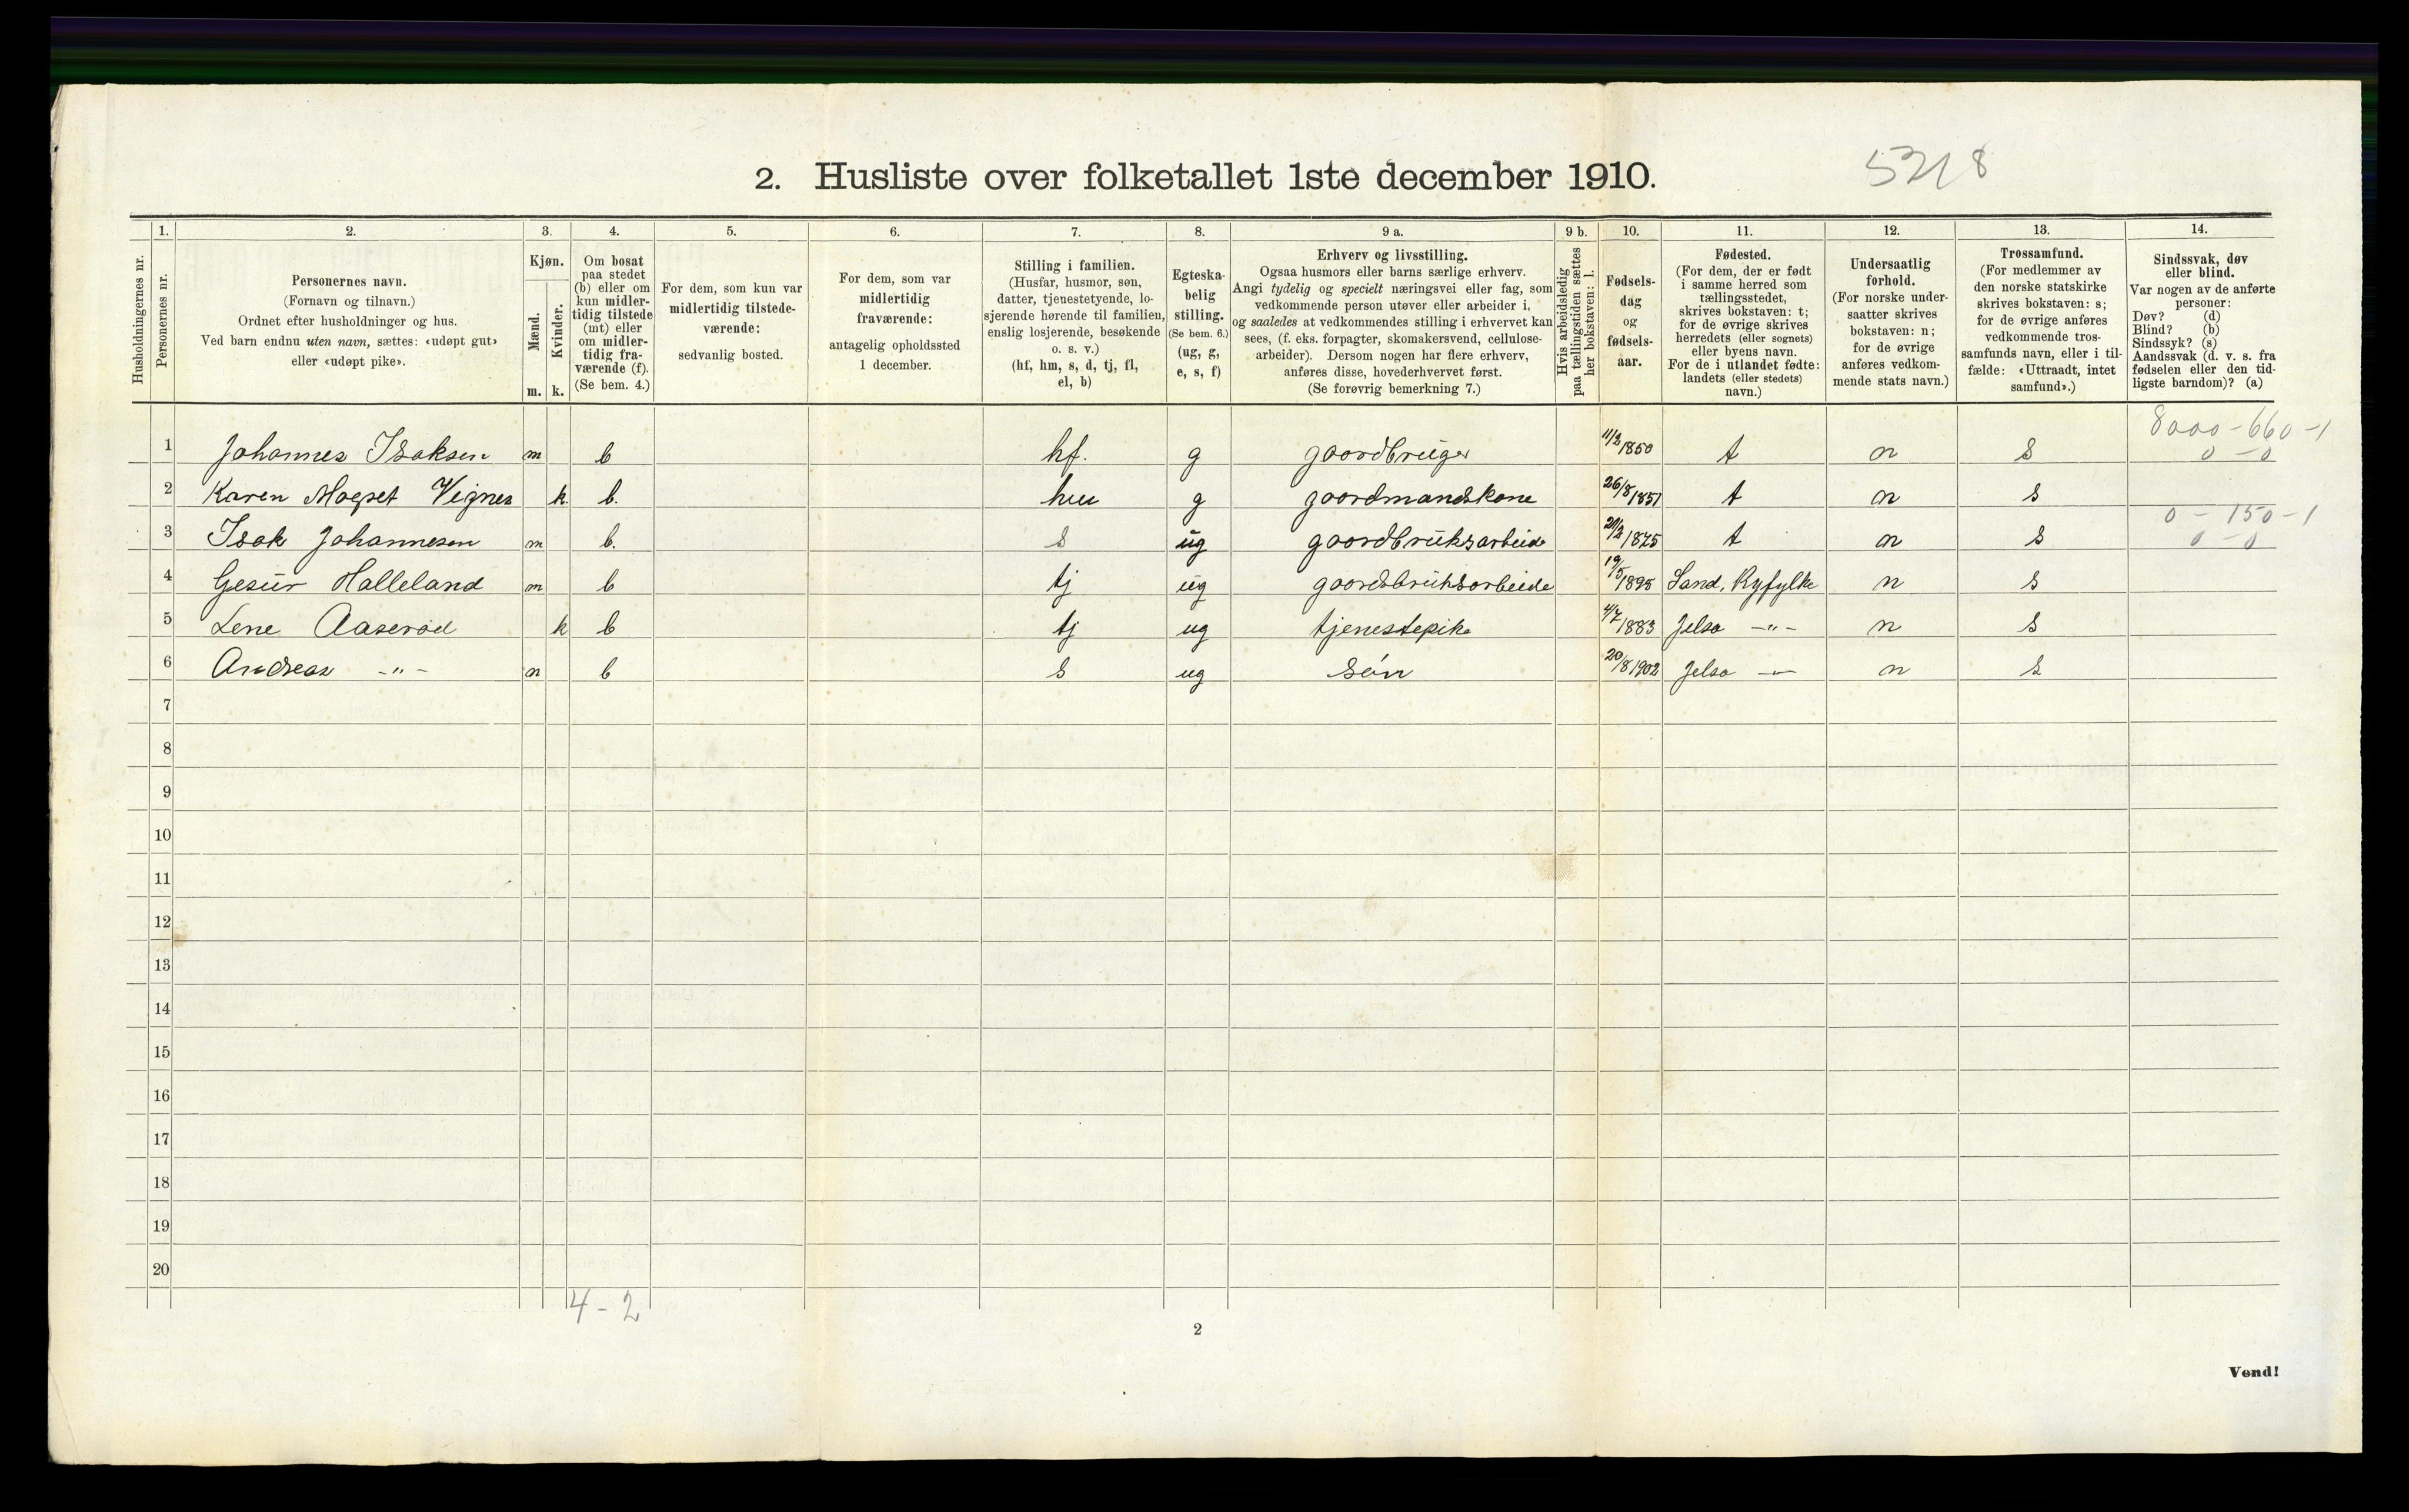 2. Husliste over folketallet 1ste december 1910.
5218
Husholdningernes nr.
1. Personernes nr.
2. Personernes navn.
(Fornavn og tilnavn.)
Ordnet efter husholdninger og hus.
Ved barn endnu uten navn, sættes: «udøpt gut»
eller «udøpt pike».
3. Kjøn.
Mænd. m.
Kvinder. k.
4. Om bosat
paa stedet
(b) eller om
kun midler-
tidig tilstede
(mt) eller
om midler-
tidig fra-
værende (f).
(Se bem. 4.)
5. For dem, som kun var
midlertidig tilstede-
værende:
sedvanlig bosted.
6. For dem, som var
midlertidig
fraværende:
antagelig opholdssted
1 december.
7. Stilling i familien.
(Husfar, husmor, søn,
datter, tjenestetyende, lo-
sjerende hørende til familien,
enslig losjerende, besøkende
o. s. v.)
(hf, hm, s, d, tj, fl,
el, b)
8. Egteska-
belig
stilling.
(Se bem. 6.)
(ug, g,
e, s, f)
9 a. Erhverv og livsstilling.
Ogsaa husmors eller barns særlige erhverv.
Angi tydelig og specielt næringsvei eller fag, som
vedkommende person utøver eller arbeider i,
og saaledes at vedkommendes stilling i erhvervet kan
sees, (f. eks. forpagter, skomakersvend, cellulose-
arbeider). Dersom nogen har flere erhverv,
anføres disse, hovederhvervet først.
(Se forøvrig bemerkning 7.)
9 b. Hvis arbeidsledig
paa tællingstiden sættes
her bokstaven: l.
10. Fødsels-
dag
og
fødsels-
aar.
11. Fødested.
(For dem, der er født
i samme herred som
tællingsstedet,
skrives bokstaven: t;
for de øvrige skrives
herredets (eller sognets)
eller byens navn.
For de i utlandet fødte:
landets (eller stedets)
navn.)
12. Undersaatlig
forhold.
(For norske under-
saatter skrives
bokstaven: n;
for de øvrige
anføres vedkom-
mende stats navn.)
13. Trossamfund.
(For medlemmer av
den norske statskirke
skrives bokstaven: s;
for de øvrige anføres
vedkommende tros-
samfunds navn, eller i til-
fælde: «Uttraadt, intet
samfund».)
14. Sindssvak, døv
eller blind.
Var nogen av de anførte
personer:
Døv? (d)
Blind? (b)
Sindssyk? (s)
Aandssvak (d. v. s. fra
fødselen eller den tid-
ligste barndom)? (a)
8000-660-1
1 Johannes Isaksen m b hf. g gaardbruger 11/2 1850 t n s 0-0
2 Karen Vignes k b. hm g gaardmandskone 26/8 1851 t n s
0-150-1
3 Isak Johannesen m b. s ug gaardbruksarbeide 21/2 1875 t n s 0-0
4 Halleland m b tj ug gaardsbruksarbeide 19/5 1895 Sand, Ryfylke n s
5 Lene Aaserød k b tj ug tjenestepike 4/7 1883 Jelsa -"- n s
6 Andreas -"- m b s ug søn 20/8 1902 Jelsa -"- n s
7
8
9
10
11
12
13
14
15
16
17
18
19
20
4-2
2
Vend!